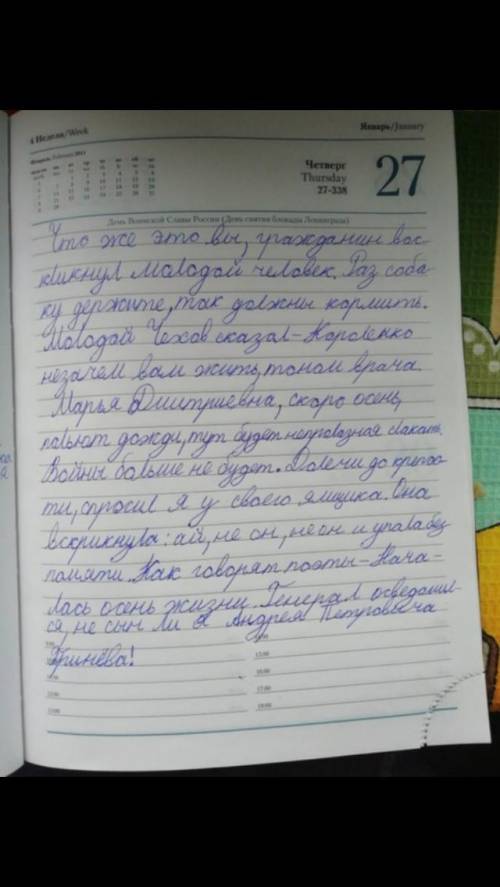 4 Неделя/Week
Январь/January
Февраль/February 2011
Четверг
Thursday
27-338
27
День Воинской Славы России (День снятия блокады Ленинграда)
Что же это вы, гражданин вос-
кликнул молодой человек. Раз соба-
ку держите, так должны кормить.
Молодой Чехов сказал-Короленко
незачем вам жить, тоном врача.
Марья Дмитриевна, скоро осень,
польют дожди, тут будет непролазная слякать.
Войны больше не будет. Далечи до крепос-
ти, спросил я у своего ямщика. Она
вскрикнула: ай, не он, не он и упала без
памяти. Как говорят поэты-Нача-
лась осень жизни. Генерал осведомил-
ся, не сын ли я Андрея Петровича
Гринёва!
15:00
12:00
17:00
13:00
18:00